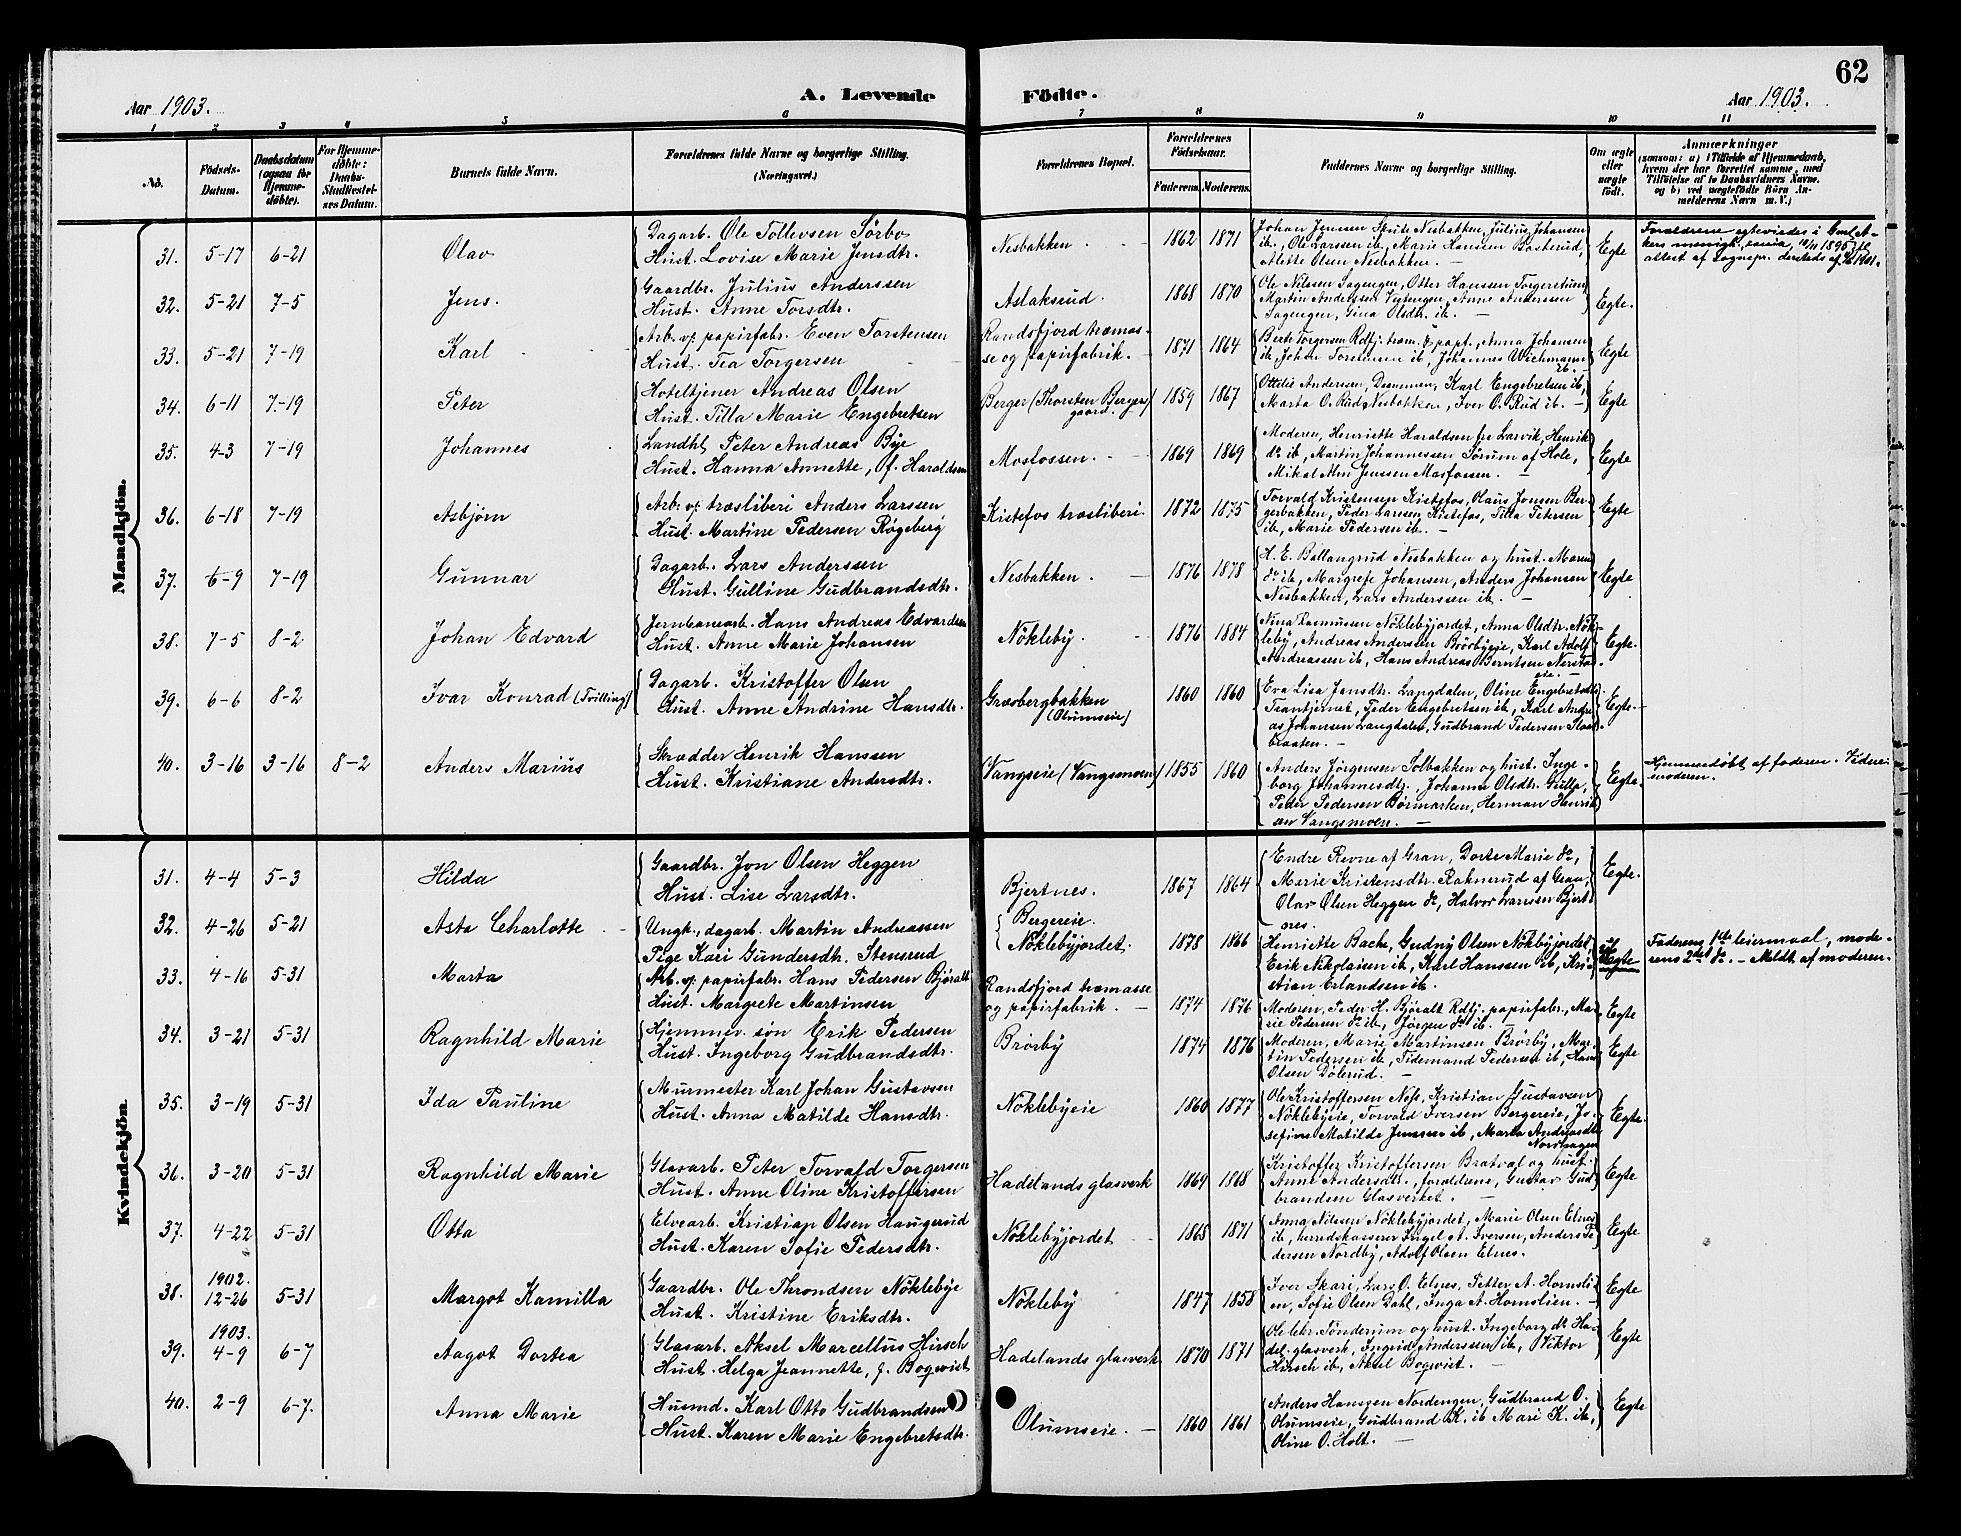 62
Aar 1903.
A. Levende Födte.
Aar 1903.
1 2 3 4 5 6 7 8 9 10 11
No.
Födsels-
Datum.
Daabsdatum
(ogsaa for
Hjemme-
döbte).
For Hjemme-
döbte:
Daabs-
Stadfæstel-
ses Datum.
Barnets fulde Navn.
Forældrenes fulde Navne og borgerlige Stilling.
(Næringsvei.)
Forældrenes Bopæl.
Forældrenes
Födselsaar.
Faderens. Moderens.
Faddernes Navne og borgerlige Stilling.
Om ægte
eller
uægte
födt.
Anmærkninger
(saasom: a) i Tilfælde af Hjemmedaab,
hvem der har forrettet samme, med
Tilföielse af to Daabsvidners Navne,
og b) ved uægtefödte Börn An-
melderens Navn m. V.)
Mandkjön.
31. 5-17 6-21 Olav
Dagarb. Ole Tollevsen Sørbo
Hust. Lovise Marie Jensdtr.
Nesbakken. 1862 1871
Johan Jensen Nesbakken, Julius Johansen
ib, Ole Larssen ib, Marie Hanssen
Alette Olsen Nesbakken.
Egte
Forældrene egteviedes i
menigh. 1895
attest af Sognepr. dersteds af 1901.
32. 5-21 7-5 Jens.
Gaardbr. Julius Anderssen
Hust. Anne Torsdtr.
Aslaksrud. 1868 1870
Ole Nilssen Sagengen, Otter Hanssen
Martin Anderssen Anne Anderssen
Sagengen, Gina Olsdtr. ib.
Egte.
33. 5-21 7-19 Karl
Arb. v/ papirfabr. Even Torstensen
Hust. Tea Torgersen
Randsfjord træmas-
se og papirfabrik. 1871 1864
Berte Torgersen Rdfj. træm. & papf., Anna Johansen
ib, Johan Torstensen ib, Johannes Wichmann
ib.
Egte
34. 6-11 7-19 Peter
Hoteltjener Andreas Olsen
Hust. Tilla Marie Engebretsen
Berger (Thorsten Berger
gaard. 1859 1867
Ottilie Anderssen, Drammen, Karl Engebretsen ib,
Marta O. Rud, Nesbakken, Iver O. Rud ib.
Egte
35. 4-3 7-19 Johannes
Landhl. Peter Andreas Bye
Hust. Hanna Annette, f. Haraldsen
Mosfossen. 1869 1869
Moderen, Henriette Haraldsen fra Larvik, Henrik
do ib, Martin Johannessen Sørum af Hole,
Mikal Alm Jenssen Mosfossen.
Egte
36. 6-18 7-19 Asbjørn
Arb. v/ træsliberi Anders Larssen
Hust. Martine Pedersen Røgeberg
Kistefos træsliberi. 1872 1875
Torvald Kristensen Kistefos, Olaus Jonsen Ber-
gerbakken, Peder Larssen Kistefos, Tilla Petersen
ib, Marie Pedersen ib.
Egte
37. 6-9 7-19 Gunnar
Dagarb. Lars Anderssen
Hust. Gulline Gudbrandsdtr.
Nesbakken. 1876 1878
H. E. Ballangrud Nesbakken og hust. Maren
do ib, Margrete Johansen, Anders Johansen
Nesbakken, Lars Anderssen ib.
Egte
38. 7-5 8-2 Johan Edvard
Jernbanearb. Hans Andreas Edvardsen
Hust. Anne Marie Johansen
Nökleby. 1876 1884
Nina Rasmussen Nöklebyjordet, Anna Olsdtr. Nök-
leby, Andreas Anderssen Brörbyeie, Karl Adolf
Andreassen ib, Hans Andreas Berntsen
eie.
Egte.
39. 6-6 8-2 Ivar Konrad (Tvilling)
Dagarb. Kristoffer Olsen
Hust. Anne Andrine Hansdtr.
Græsbergbakken
(Olumseie) 1860 1860
Eva Lisa Jansdtr. Langdalen, Oline Engebretsdtr.
Trantjernet, Peder Engebretsen ib, Karl Andre-
as Johansen Langdalen, Gudbrand Pedersen
braaten.
Egte.
40. 3-16 3-16 8-2 Anders Marius
Skrædder Henrik Hanssen
Hust. Kristiane Andersdtr.
Vangseie (Vangsmoen) 1855 1860
Anders Jörgensen Solbakken og hust. Inge-
borg Johannesdtr., Johanne Olsdtr. Gulla,
Peder Pedersen Börmarken, Herman Henrik-
sen Vangsmoen.
Egte.
Hjemmedöbt af faderen. Vidne:
moderen.
Kvindekjön.
31. 4-4 5-3 Hilda
Gaardbr. Jon Olsen Heggen
Hust. Lise Larsdtr.
Bjertnes. 1867 1864
Endre Revne af Gran, Dorte Marie do,
Marie Kristensdtr. Raknerud af Gran,
Olav Olsen Heggen do, Halvor Larssen Bjert-
nes.
Egte.
32. 4-26 5-21 Asta Charlotte
Ungk., dagarb. Martin Andreassen
Pige Kari Gundersdtr. Stensrud
Bergereie.
Nöklebyjordet. 1878 1866
Henriette Bache, Gudny Olsen Nöklebyjordet,
Erik Nikolaisen ib, Karl Hanssen ib, Kri-
stian Erlandsen ib.
uegte
Faderens 1ste leiermaal, mode-
rens 2det do. - Meldt af moderen.
33. 4-16 5-31 Marta
Arb. v/ papirfabr. Hans Pedersen Björalt
Hust. Margrete Martinsen
Randsfjord træmasse
og papirfabrik. 1874 1876
Moderen, Peder H. Björalt Rdfj. papirfabr., Ma-
rie Pedersen do ib, Jörgen do ib.
Egte
34. 3-21 5-31 Ragnhild Marie
Hjemmev. sön Erik Pedersen
Hust. Ingeborg Gudbrandsdtr.
Brörby 1874 1876
Moderen, Marie Martinsen Brörby, Mar-
tin Pedersen ib, Tidemand Pedersen ib, Hans
Olsen Dölerud.
Egte
35. 3-19 5-31 Ida Pauline
Murmester Karl Johan Gustavsen
Hust. Anna Matilde Hansdtr.
Nöklebyeie 1860 1877
Ole Kristoffersen Nese, Kristian Gustavsen
Nöklebyeie, Torvald Iversen Bergereie, Jo-
sefine Matilde Jenssen ib, Marta Andreasdtr.
Nordhagen
Egte.
36. 3-20 5-31 Ragnhild Marie
Glasarb. Peter Torvald Torgersen
Hust. Anne Oline Kristoffersen
Hadelands glasverk 1864 1868
Kristoffer Kristoffersen Bratval og hust.
Anne Andersdtr., forældrene, Gustav Gud-
brandsen Glasverket.
Egte
37. 4-22 5-31 Otta
Elvearb. Kristian Olsen Haugerud
Hust. Karen Sofie Pedersdtr.
Nöklebyjordet 1868 1871
Anna Nilssen Nöklebyjordet, Marie Olsen Elnes
ib, herredskasserer Engel A. Iversen, Anders Pe-
dersen Nordby, Adolf Olsen Elnes.
Egte
38. 1902.
12-26 5-31 Margot Kamilla
Gaardbr. Ole Throndsen Nöklebye
Hust. Kristine Eriksdtr.
Nökleby 1847 1858
Iver Skari, Lars O. Elnes, Petter A. Hornsli-
en, Sofie Olsen Dahl, Inga A. Hornslien.
Egte
39. 1903.
4-9 6-7 Aagot Dortea
Glasarb. Aksel Marcellus Hirsch
Hust. Helga Jeannette, f. Bogvist
Hadelands glasverk 1870 1871
Ole Chr. Sönderum og hust. Ingeborg do Ha-
del. glasverk, Ingrid Anderssen ib, Viktor
Hirsch ib, Aksel Bogvist.
Egte
40. 2-9 6-7. Anna Marie
Husmd. Karl Otto Gudbrandsen
Hust. Karen Marie Engebretsdtr.
Olumseie. 1860 1861
Anders Hanssen Nordengen, Gudbrand O.
Olumseie, Gudbrand K. ib Mari K. ib,
Oline O. Holt.
Egte